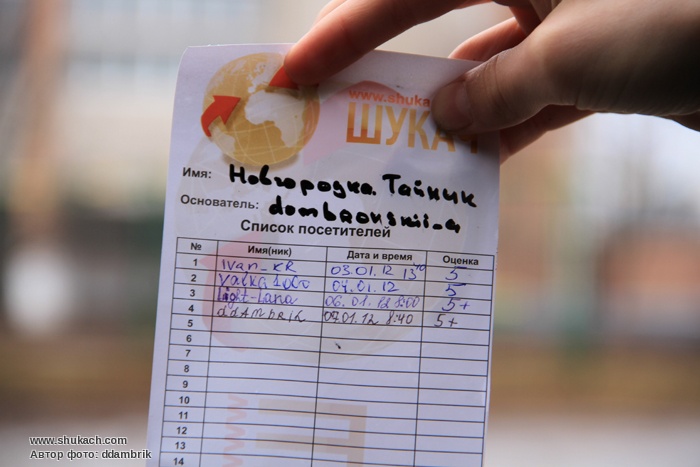 www.shuka
ШУКАЧ
Имя: Новгородка. Тайник
Основатель: dombrovskii_a
Список посетителей
№ Имя(ник) Дата и время Оценка
1 Ivan_KR 03.01.12 13 40 5
2 Valka Lobo 04.01.12 5
3 Light-Lana 06.01.12 5+
4 ddAmbrik 07.01.12 8:40 5+
5
6
7
8
9
10
11
12
13
14
www.shukach.com
Автор фото: ddambrik